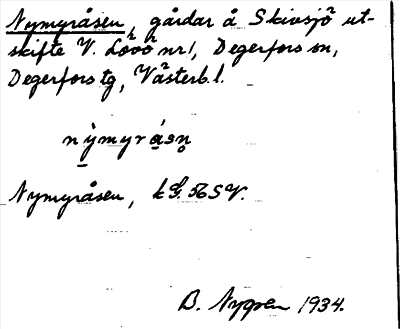 Nymyråsen, gårdar å Skivsjö ut-
skifte V. Lövö nr 1, Degerfors sn,
Degerfors tg, Västerb. l.
nỳmyrásn̥
Nymyråsen, k G. 56 S V.
B. Nygren 1934.